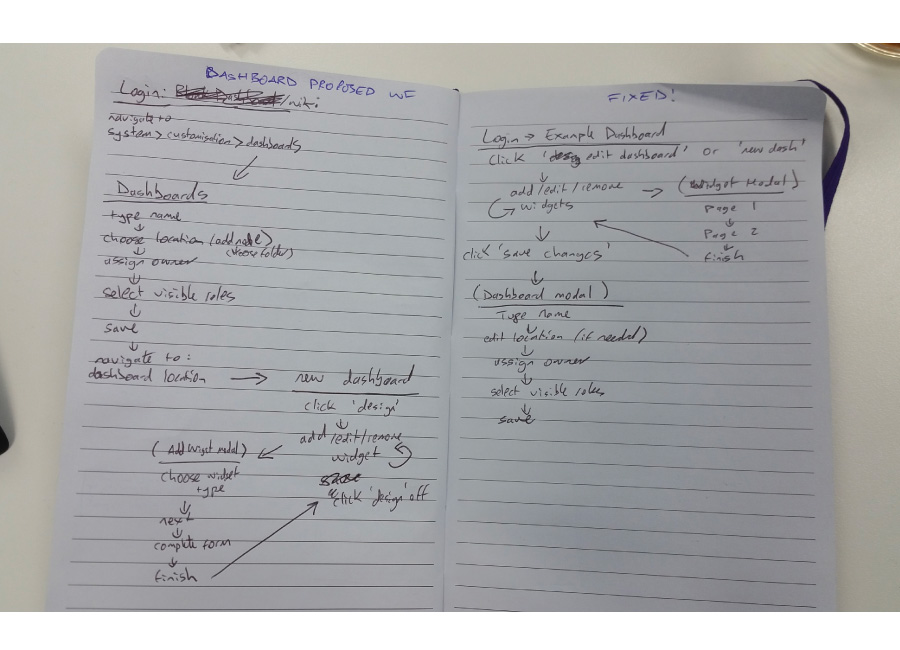 DASHBOARD PROPOSED WF
Login: /niki
navigate to
system > customisation > dashboards
Dashboards
type name
choose location (add node)
(choose folder)
assign owner
select visible roles
save
navigate to:
dashboard location → new dashboard
click 'design'
add/edit/remove
widget
(Add Wiget modal)
choose widget
type
next
complete form
finish
click 'design' off
FIXED!
Login → Example Dashboard
click 'edit dashboard' or 'new dash'
add/edit/remove → (Widget Modal)
widgets
Page 1
Page 2
finish
click 'save changes'
(Dashboard modal)
Type name
edit location (if needed)
assign owner
select visible roles
save